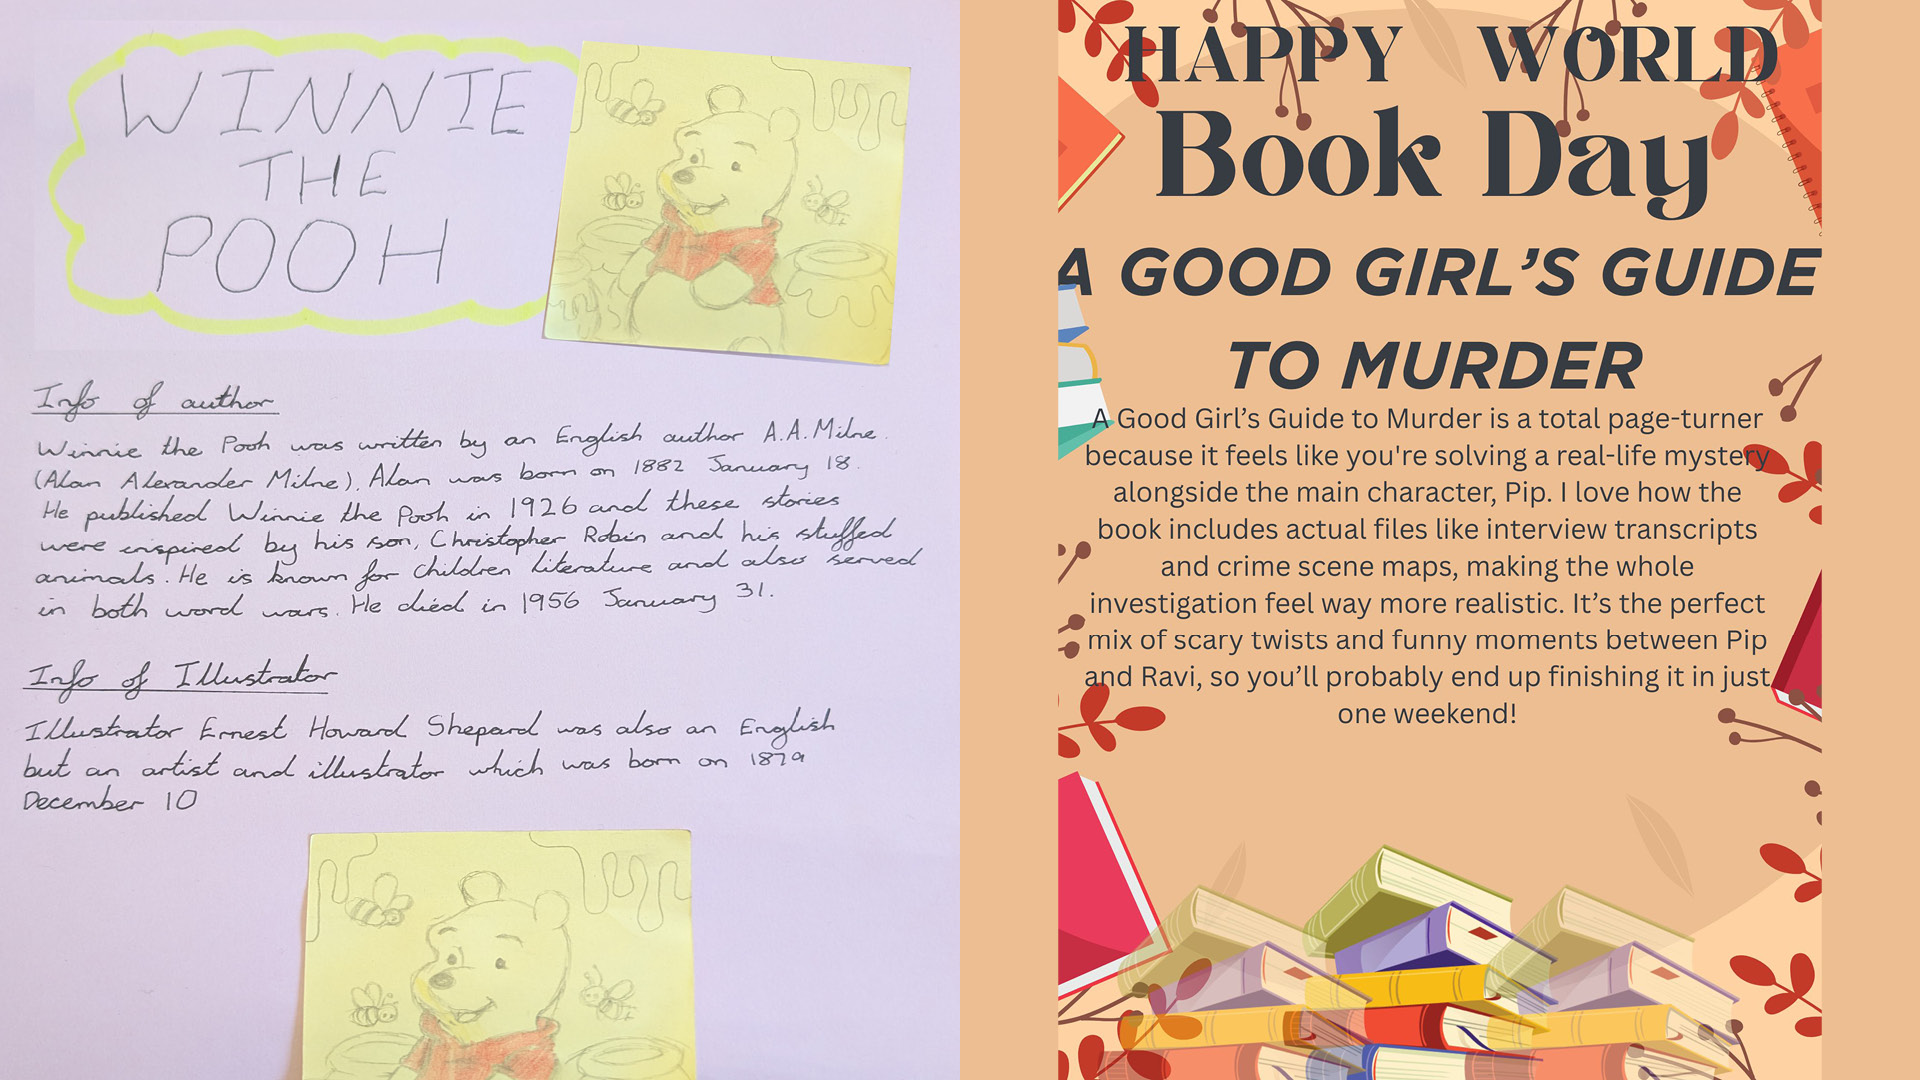 WINNIE
THE
POOH
Info of author
Winnie the Pooh was written by an English author A.A.Milne.
(Alan Alexander Milne). Alan was born on 1882 January 18.
He published Winnie the Pooh in 1926 and these stories
were inspired by his son, Christopher Robin and his stuffed
animals. He is known for children literature and also served
in both word wars. He died in 1956 January 31.
Info of Illustrator
Illustrator Ernest Howard Shepard was also an English
but an artist and illustrator which was born on 1879
December 10
HAPPY WORLD
Book Day
A GOOD GIRL’S GUIDE
TO MURDER
A Good Girl’s Guide to Murder is a total page-turner
because it feels like you're solving a real-life mystery
alongside the main character, Pip. I love how the
book includes actual files like interview transcripts
and crime scene maps, making the whole
investigation feel way more realistic. It’s the perfect
mix of scary twists and funny moments between Pip
and Ravi, so you’ll probably end up finishing it in just
one weekend!